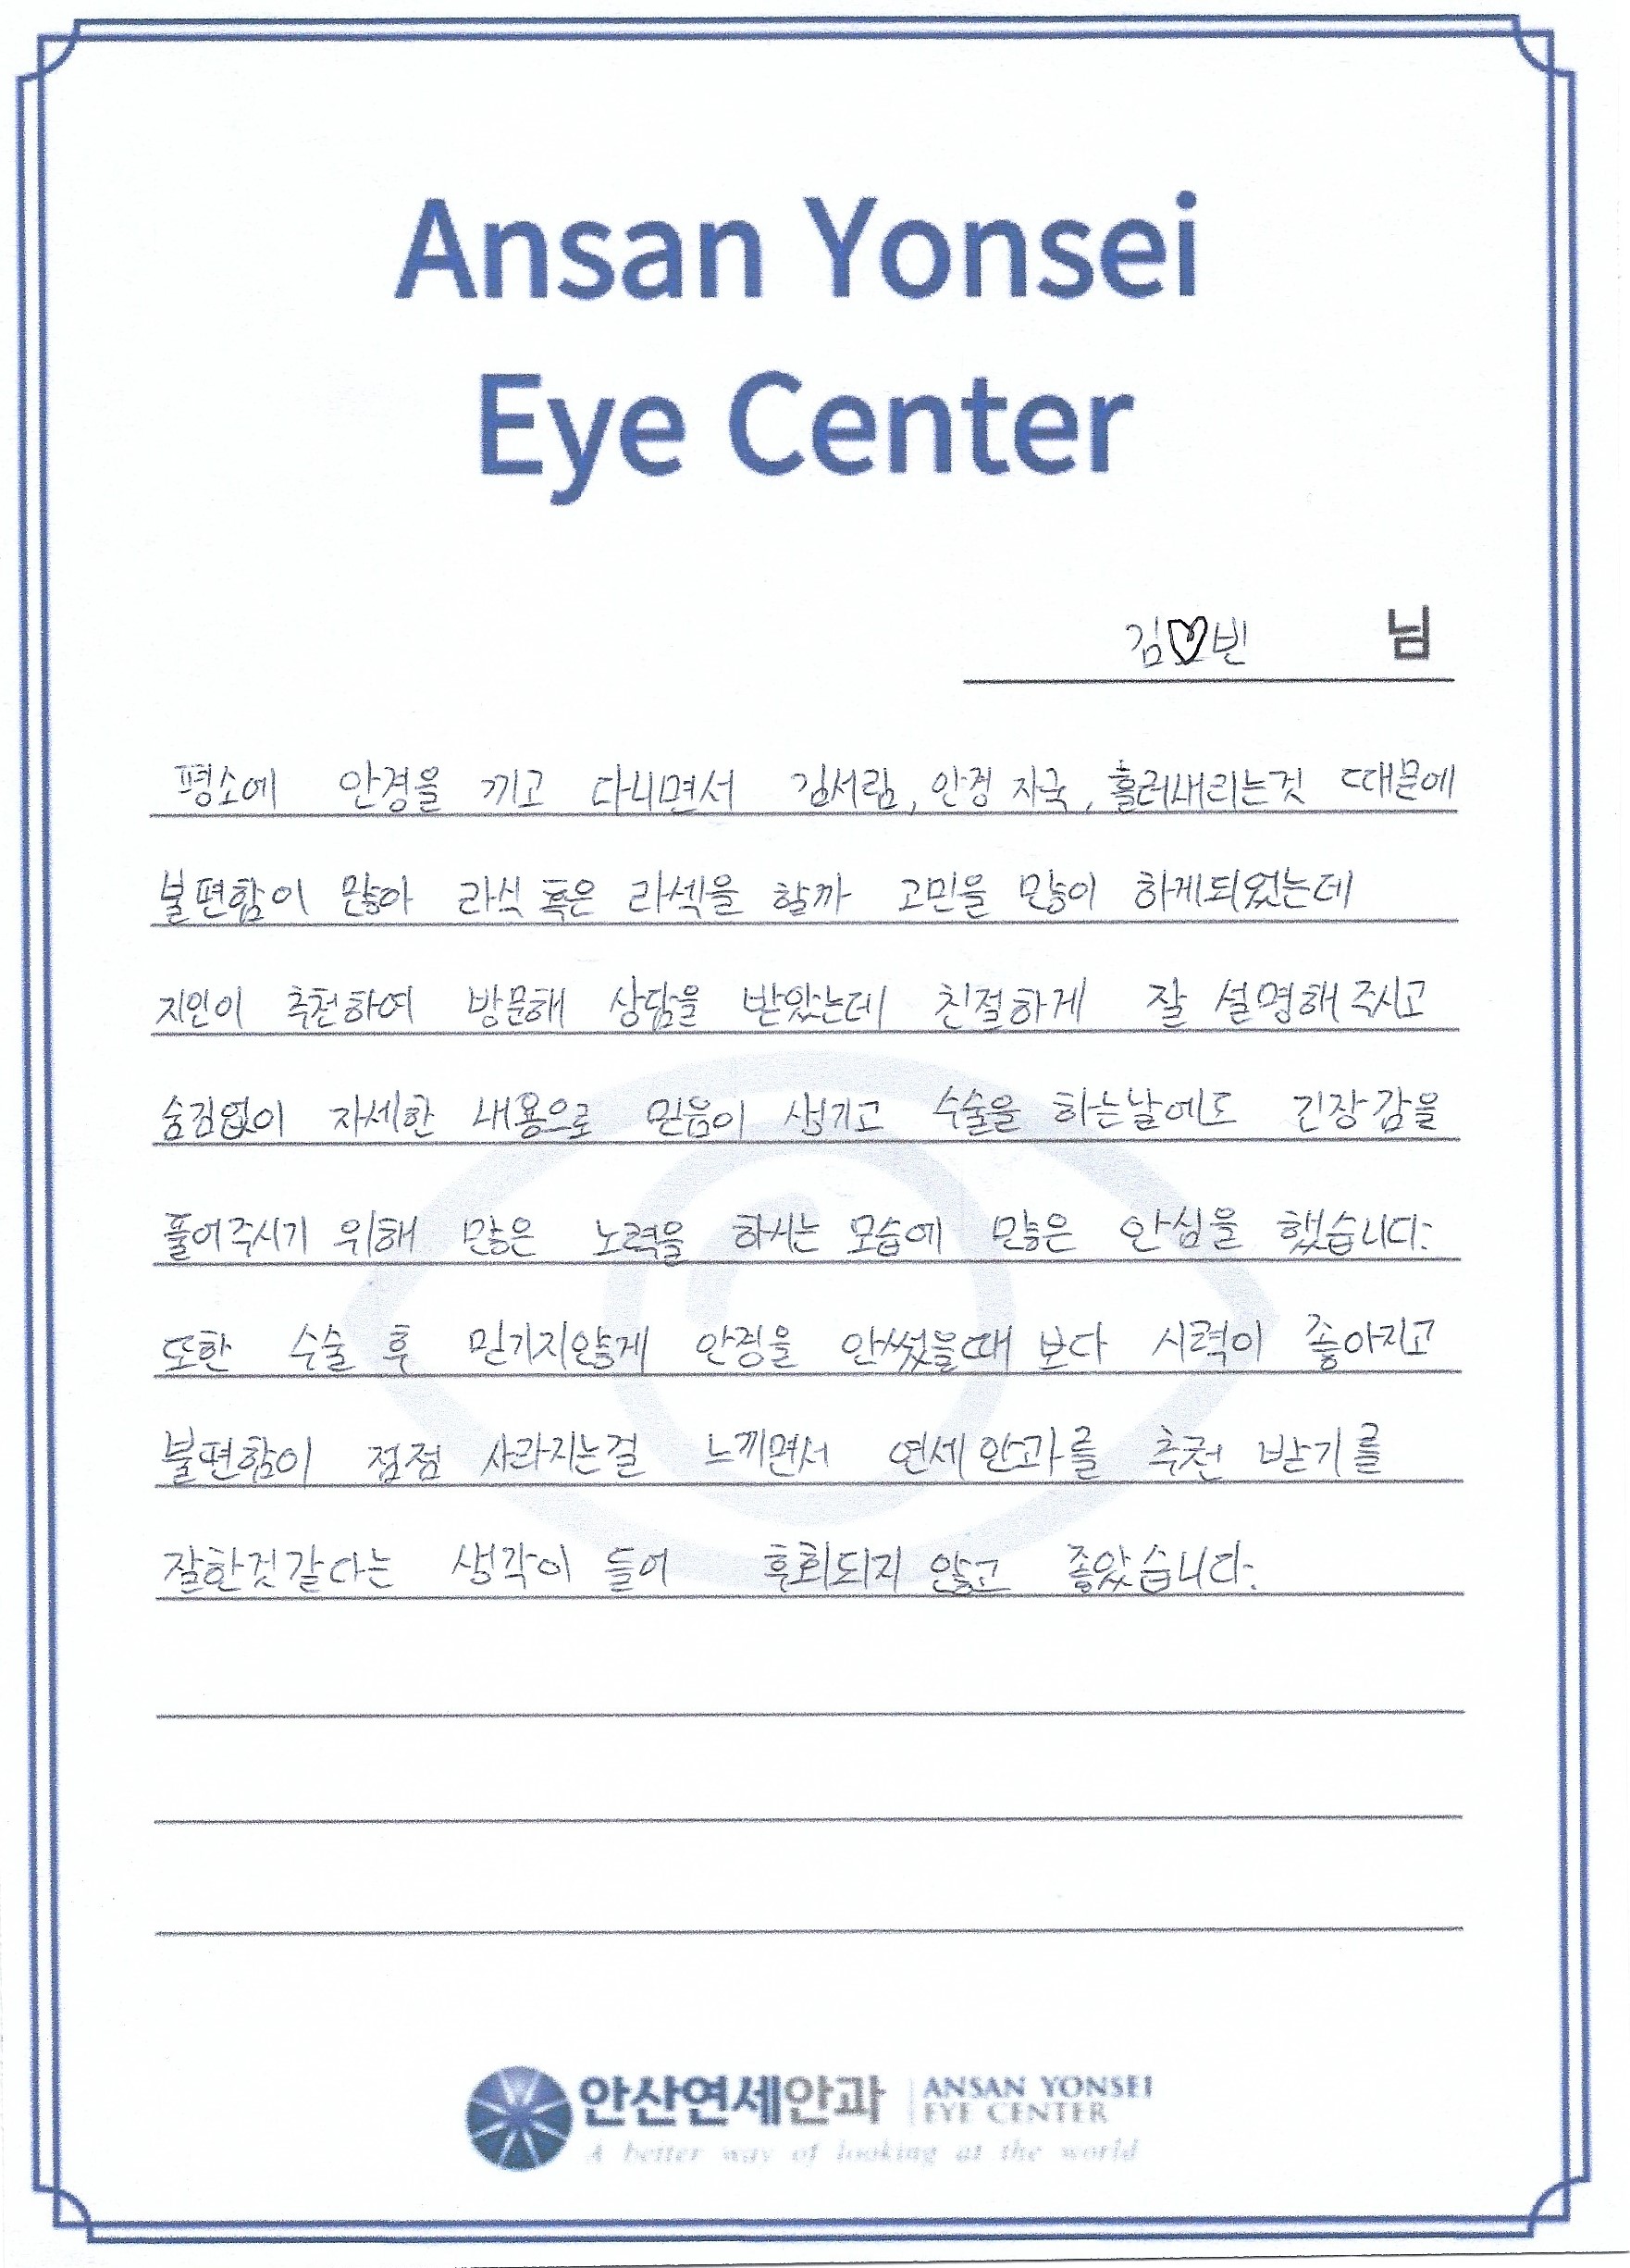 Ansan Yonsei
Eye Center
김♡빈 님
평소에 안경을 끼고 다니면서 김서림, 안경 자국, 흘러내리는것 때문에
불편함이 많아 라식 혹은 라섹을 할까 고민을 많이 하게되었는데
지인이 추천하여 방문해 상담을 받았는데 친절하게 잘 설명해 주시고
숨김없이 자세한 내용으로 믿음이 생기고 수술을 하는날에도 긴장감을
풀어주시기 위해 많은 노력을 하시는 모습에 많은 안심을 했습니다.
또한 수술 후 믿기지않게 안경을 안썼을때 보다 시력이 좋아지고
불편함이 점점 사라지는걸 느끼면서 연세안과를 추천 받기를
잘한것같다는 생각이 들어 후회되지 않고 좋았습니다.
안산연세안과 ANSAN YONSEI
EYE CENTER
A better way of looking at the world